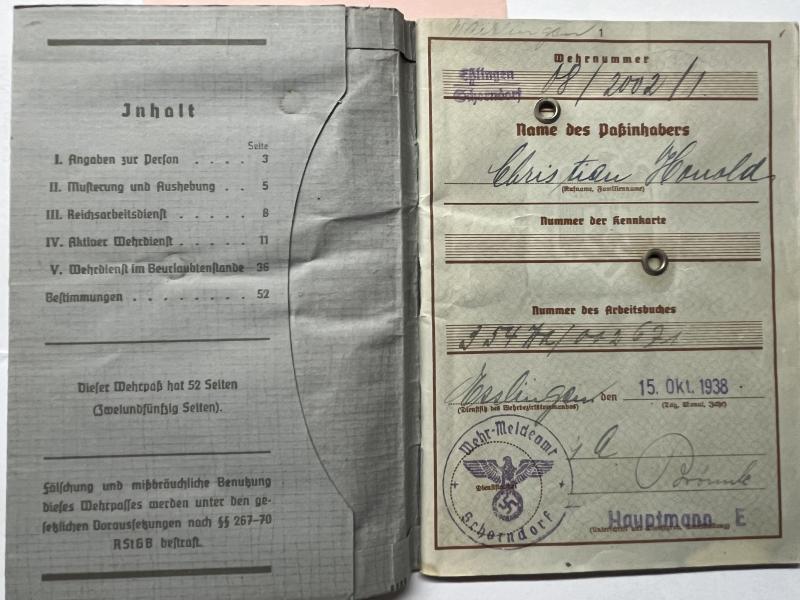 Inhalt
Seite
I. Angaben zur Person . . . . 3
II. Musterung und Aushebung . . 5
III. Reichsarbeitsdienst . . . . . 8
IV. Aktiver Wehrdienst . . . . . 11
V. Wehrdienst im Beurlaubtenstande 36
Bestimmungen . . . . . . . . 52
Dieser Wehrpaß hat 52 Seiten
(Zweiundfünfzig Seiten).
Fälschung und mißbräuchliche Benutzung
dieses Wehrpasses werden unter den ge-
setzlichen Voraussetzungen nach §§ 267-70
RStGB bestraft.
1
Wehrnummer
Eßlingen
Schorndorf
08/2002/1
Name des Paßinhabers
Christian Honold
(Rufname, Familienname)
Nummer der Kennkarte
Nummer des Arbeitsbuches
Esslingen den 15. Okt. 1938
(Dienstsitz des Wehrbezirkskommandos) (Tag, Monat, Jahr)
Wehr-Meldeamt
Schorndorf
Hauptmann E